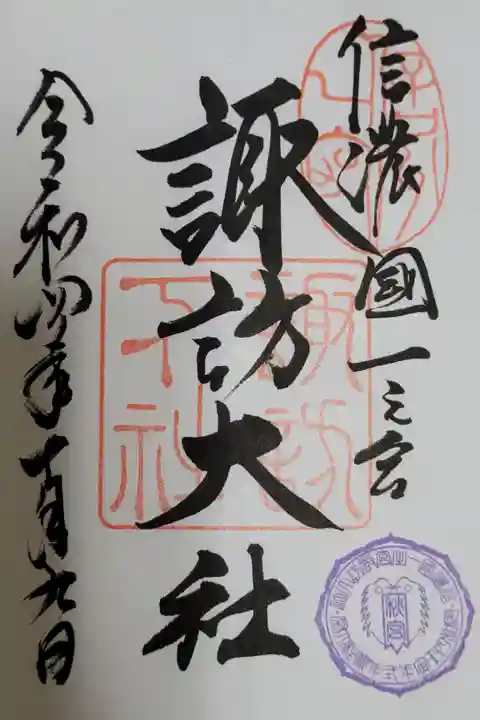 信濃國一之宮
諏訪大社
諏訪
下社
令和四年十月九日
秋宮